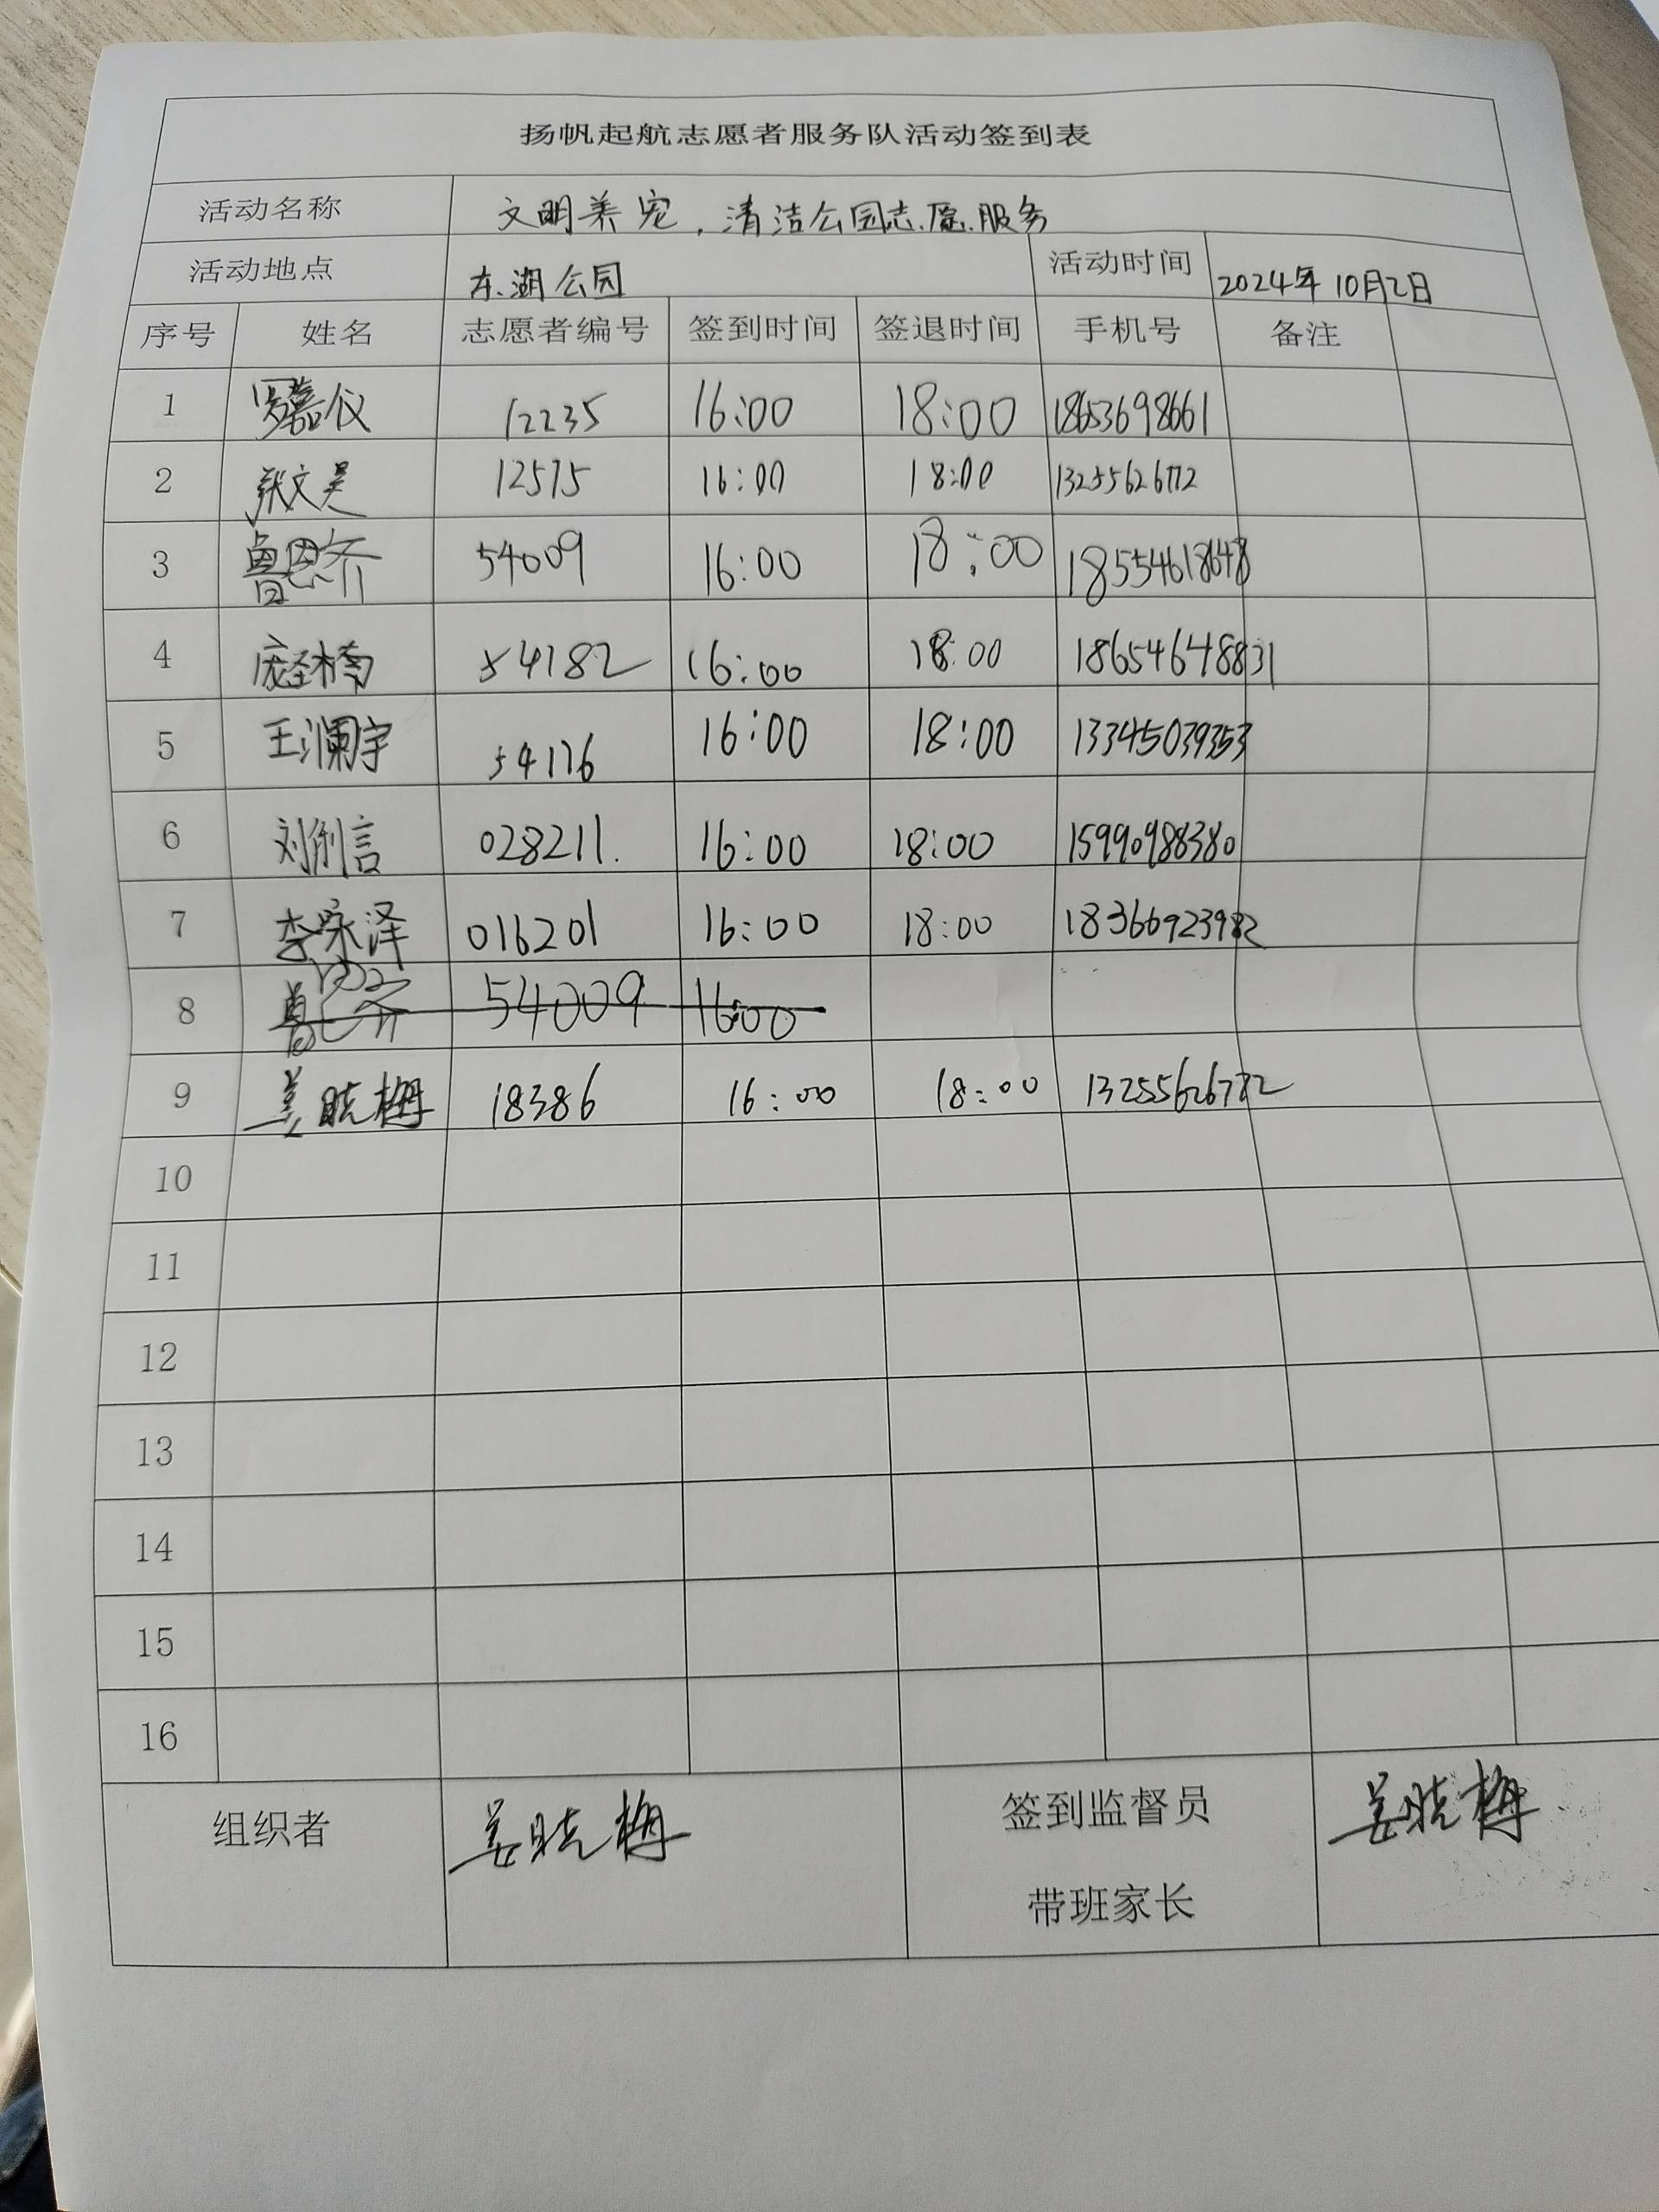 扬帆起航志愿者服务队活动签到表
活动名称 文明养宠，清洁公园志愿服务
活动地点 东湖公园 活动时间 2024年10月2日
序号 姓名 志愿者编号 签到时间 签退时间 手机号 备注
1 罗嘉仪 12235 16:00 18:00 18653698661
2 张文昊 12575 16:00 18:00
3 鲁恩齐 54009 16:00 18:00 18554618648
4 楠 54182 16:00 18:00 18654648831
5 王澜宇 54176 16:00 18:00 13345039353
6 刘俐言 028211. 16:00 18:00 15990988380
7 李咏泽 016201 16:00 18:00 18366923982
8 鲁恩齐 54009 16:00
9 姜晓梅 18386 16:00 18:00 13255626782
10
11
12
13
14
15
16
组织者 姜晓梅 签到监督员 姜晓梅
带班家长